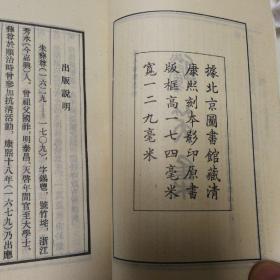 據北京圖書館藏清
康熙刻本影印原書
版框高一七四毫米
寬一二九毫米
出版説明
朱彝尊（一六二九——一七〇九），字錫鬯，號竹垞，浙江
秀水（今嘉興）人。曾祖父國祚，明泰昌、天啓年間官至大學士。
彝尊於順治時曾參加抗清活動。康熙十八年（一六七九）乃出應